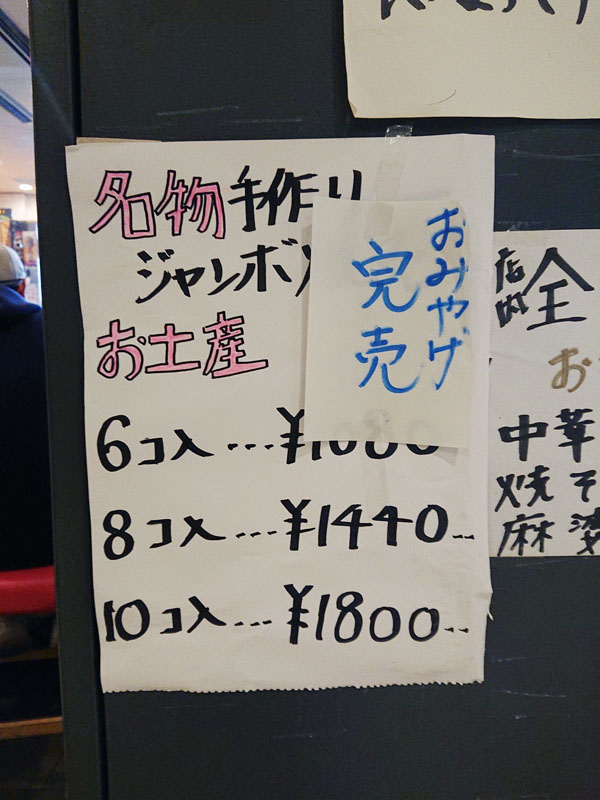 名物手作り
ジャンボ
お土産
6コ入…¥1080
8コ入…¥1440
10コ入…¥1800
おみやげ
完売
店内全
お
中華
焼そ
麻婆